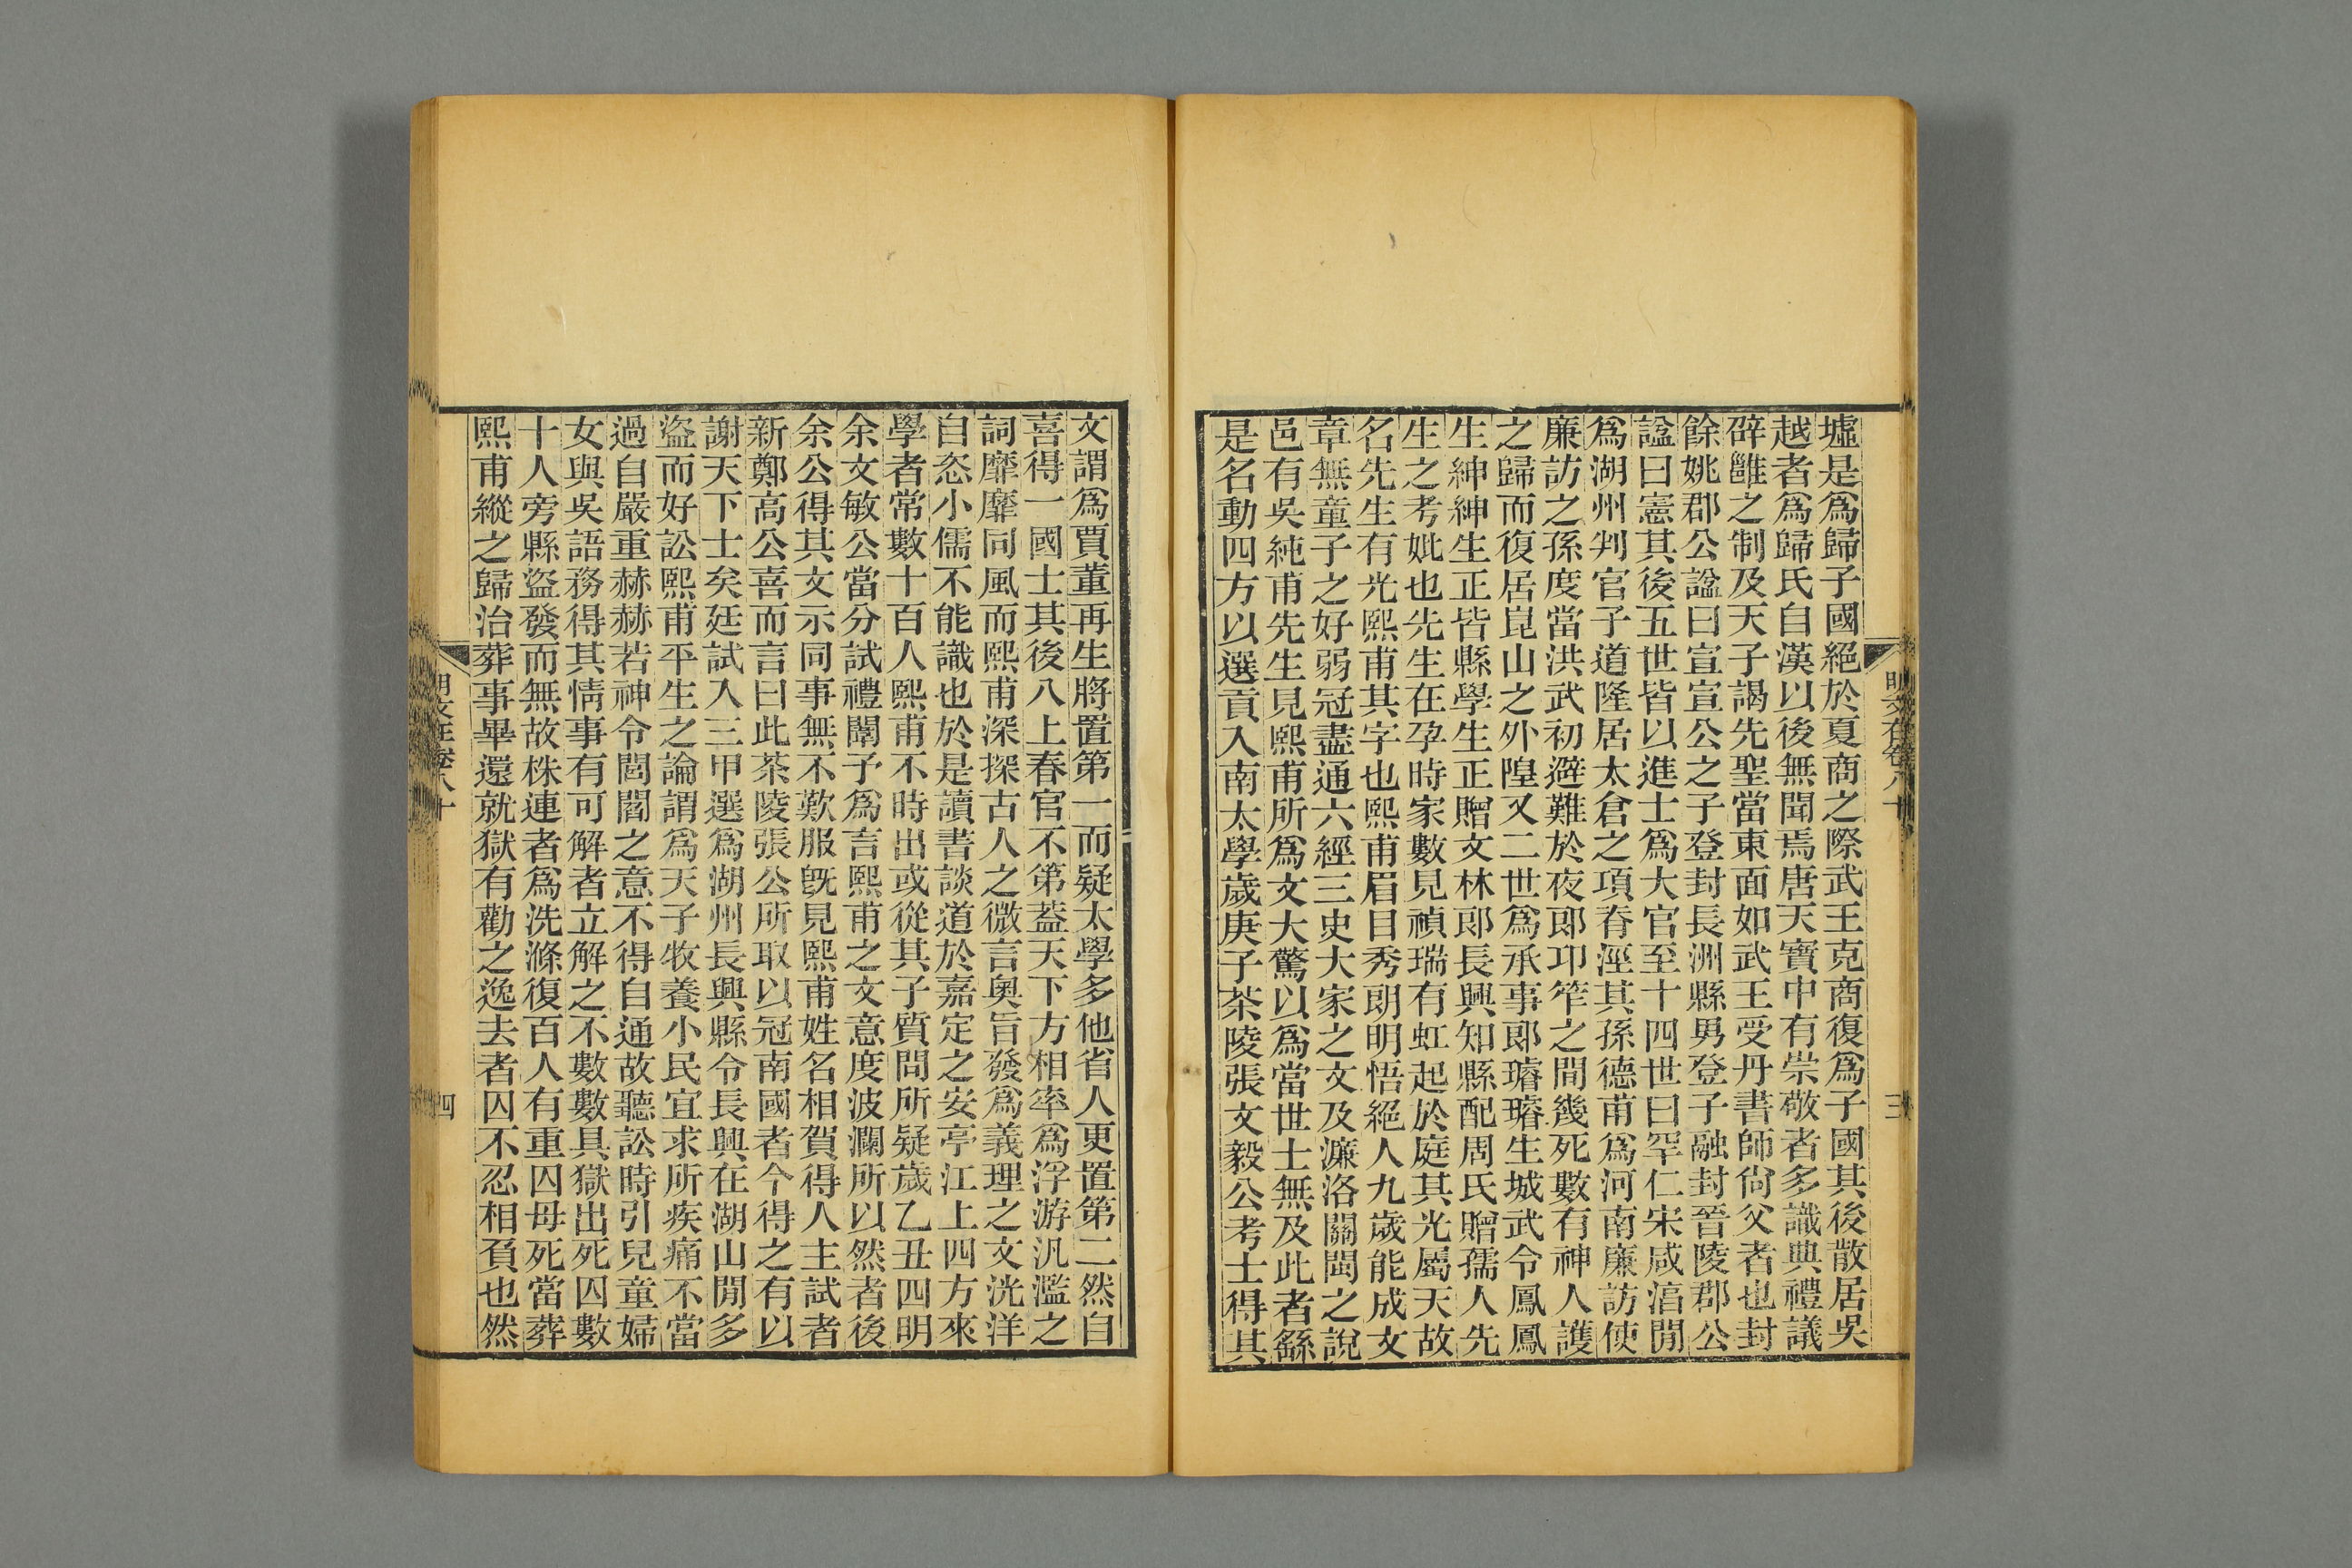 墟是爲歸子國絕於夏商之際武王克商復爲子國其後散居吳
越者爲歸氏自漢以後無聞焉唐天寶中有崇敬者多識典禮議
辟雝之制及天子謁先聖當東面如武王受丹書師尙父者也封
餘姚郡公諡曰宣宣公之子登封長洲縣男登子融封晉陵郡公
諡曰憲其後五世皆以進士爲大官至十四世曰罕仁宋咸淳閒
爲湖州判官子道隆居太倉之項脊涇其孫德甫爲河南廉訪使
廉訪之孫度當洪武初避難於夜郞卭筰之間幾死數有神人護
之歸而復居崑山之外隍又二世爲承事郞璿璿生城武令鳳鳳
生紳紳生正皆縣學生正贈文林郞長興知縣配周氏贈孺人先
生之考妣也先生在孕時家數見禎瑞有虹起於庭其光屬天故
名先生有光熙甫其字也熙甫眉目秀朗明悟絕人九歲能成文
章無童子之好弱冠盡通六經三史大家之文及濂洛關閩之說
邑有吳純甫先生見熙甫所爲文大驚以爲當世士無及此者繇
是名動四方以選貢入南太學歲庚子茶陵張文毅公考士得其
明文在卷八十
三
文謂爲賈董再生將置第一而疑太學多他省人更置第二然自
喜得一國士其後八上春官不第蓋天下方相率爲浮游汎濫之
詞靡靡同風而熙甫深探古人之微言奧旨發爲義理之文洸洋
自恣小儒不能識也於是讀書談道於嘉定之安亭江上四方來
學者常數十百人熙甫不時出或從其子質問所疑歲乙丑四明
余文敏公當分試禮闈予爲言熙甫之文意度波瀾所以然者後
余公得其文示同事無不歎服旣見熙甫姓名相賀得人主試者
新鄭高公喜而言曰此茶陵張公所取以冠南國者今得之有以
謝天下士矣廷試入三甲選爲湖州長興縣令長興在湖山閒多
盜而好訟熙甫平生之論謂爲天子牧養小民宜求所疾痛不當
過自嚴重赫赫若神令閭閻之意不得自通故聽訟時引兒童婦
女與吳語務得其情事有可解者立解之不數數具獄出死囚數
十人旁縣盜發而無故株連者爲洗滌復百人有重囚母死當葬
熙甫縱之歸治葬事畢還就獄有勸之逸去者囚不忍相負也然
明文在卷八十
四